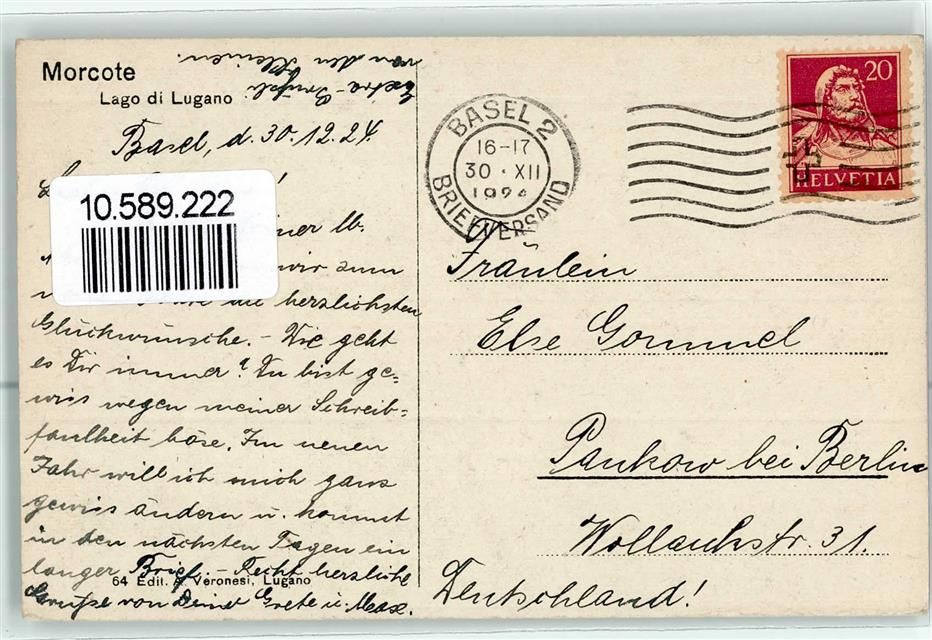 Morcote
Lago di Lugano
Extra-Grüssli
von den Kleinen.
Basel, d. 30.12.24
10.589.222
BASEL 2
16-17
30 · XII
1924
BRIEFVERSAND
20
HELVETIA
lb.
wir zum
die herzlichsten
Glückwünsche. - Wie geht
es Dir immer? Du bist ge=
wiss wegen meiner Schreib=
faulheit böse. Im neuen
Jahr will ich mich ganz
gewiss ändern u. kommt
in den nächsten Tagen ein
langer Brief. - Recht herzliche
Grüsse von Deiner Grete u. Max.
64 Edit. A. Veronesi, Lugano
Fräulein
Else Gommel
Pankow bei Berlin
Wollankstr. 31.
Deutschland!